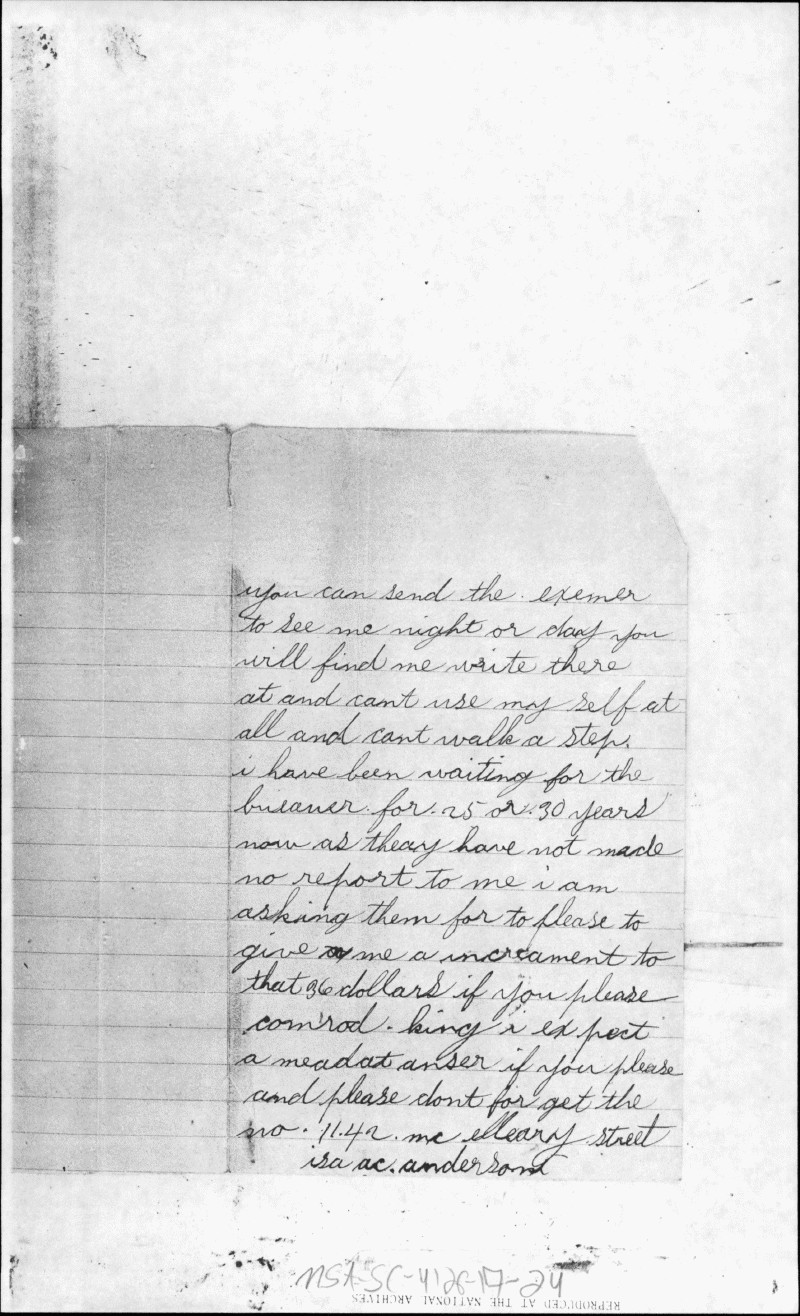 you can send the. exemer
to see me night or day you
will find me write there
at and cant use my self at
all and cant walk a step.
i have been waiting for the
bueauer. for. 25 or. 30 years
now as theay have not made
no report to me i am
asking them for to please to
give me a increament to
that 36 dollars if you please
comrod. king i expect
a meadat anser if you please
and please dont for get the
no. 11.42. mc elleary street
isa ac. anderson
NSA-SC-4126-17-24
REPRODUCED AT THE NATIONAL ARCHIVES